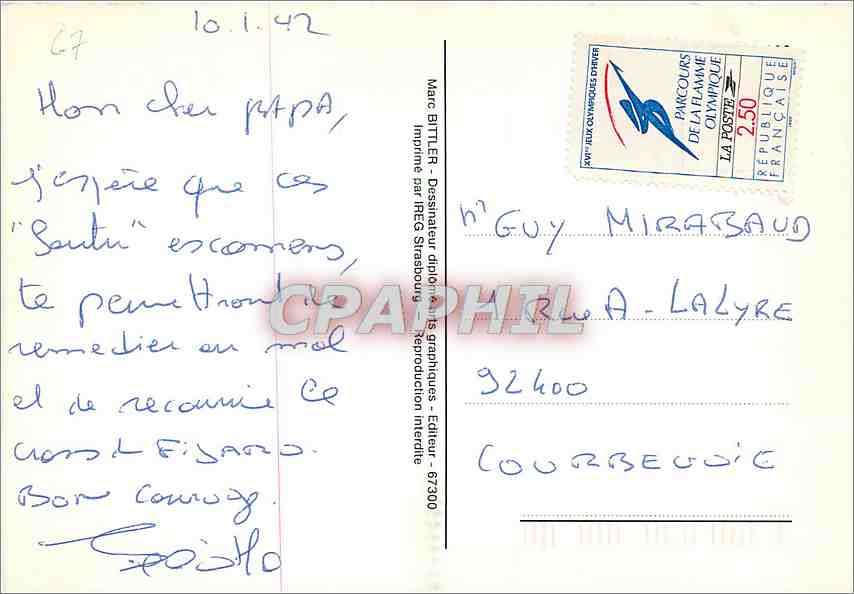 67
10.1.92
Mon cher PAPA,
j'espère que ces
"Santu" escomens,
te permettront de
remedier au mal
et de recourrir le
cross du FIGARO.
BON Courage.
Marc BITTLER - Dessinateur diplômé arts graphiques - Editeur - 67300
Imprimé par IREG Strasbourg - Reproduction interdite
XVIes JEUX OLYMPIQUES D'HIVER
PARCOURS
DE LA FLAMME
OLYMPIQUE
LA POSTE
2.50
RÉPUBLIQUE
FRANÇAISE
Mr GUY MIRABAUD
1 Rue A-LALYRE
92400
COURBEVOIE
CPAPHIL